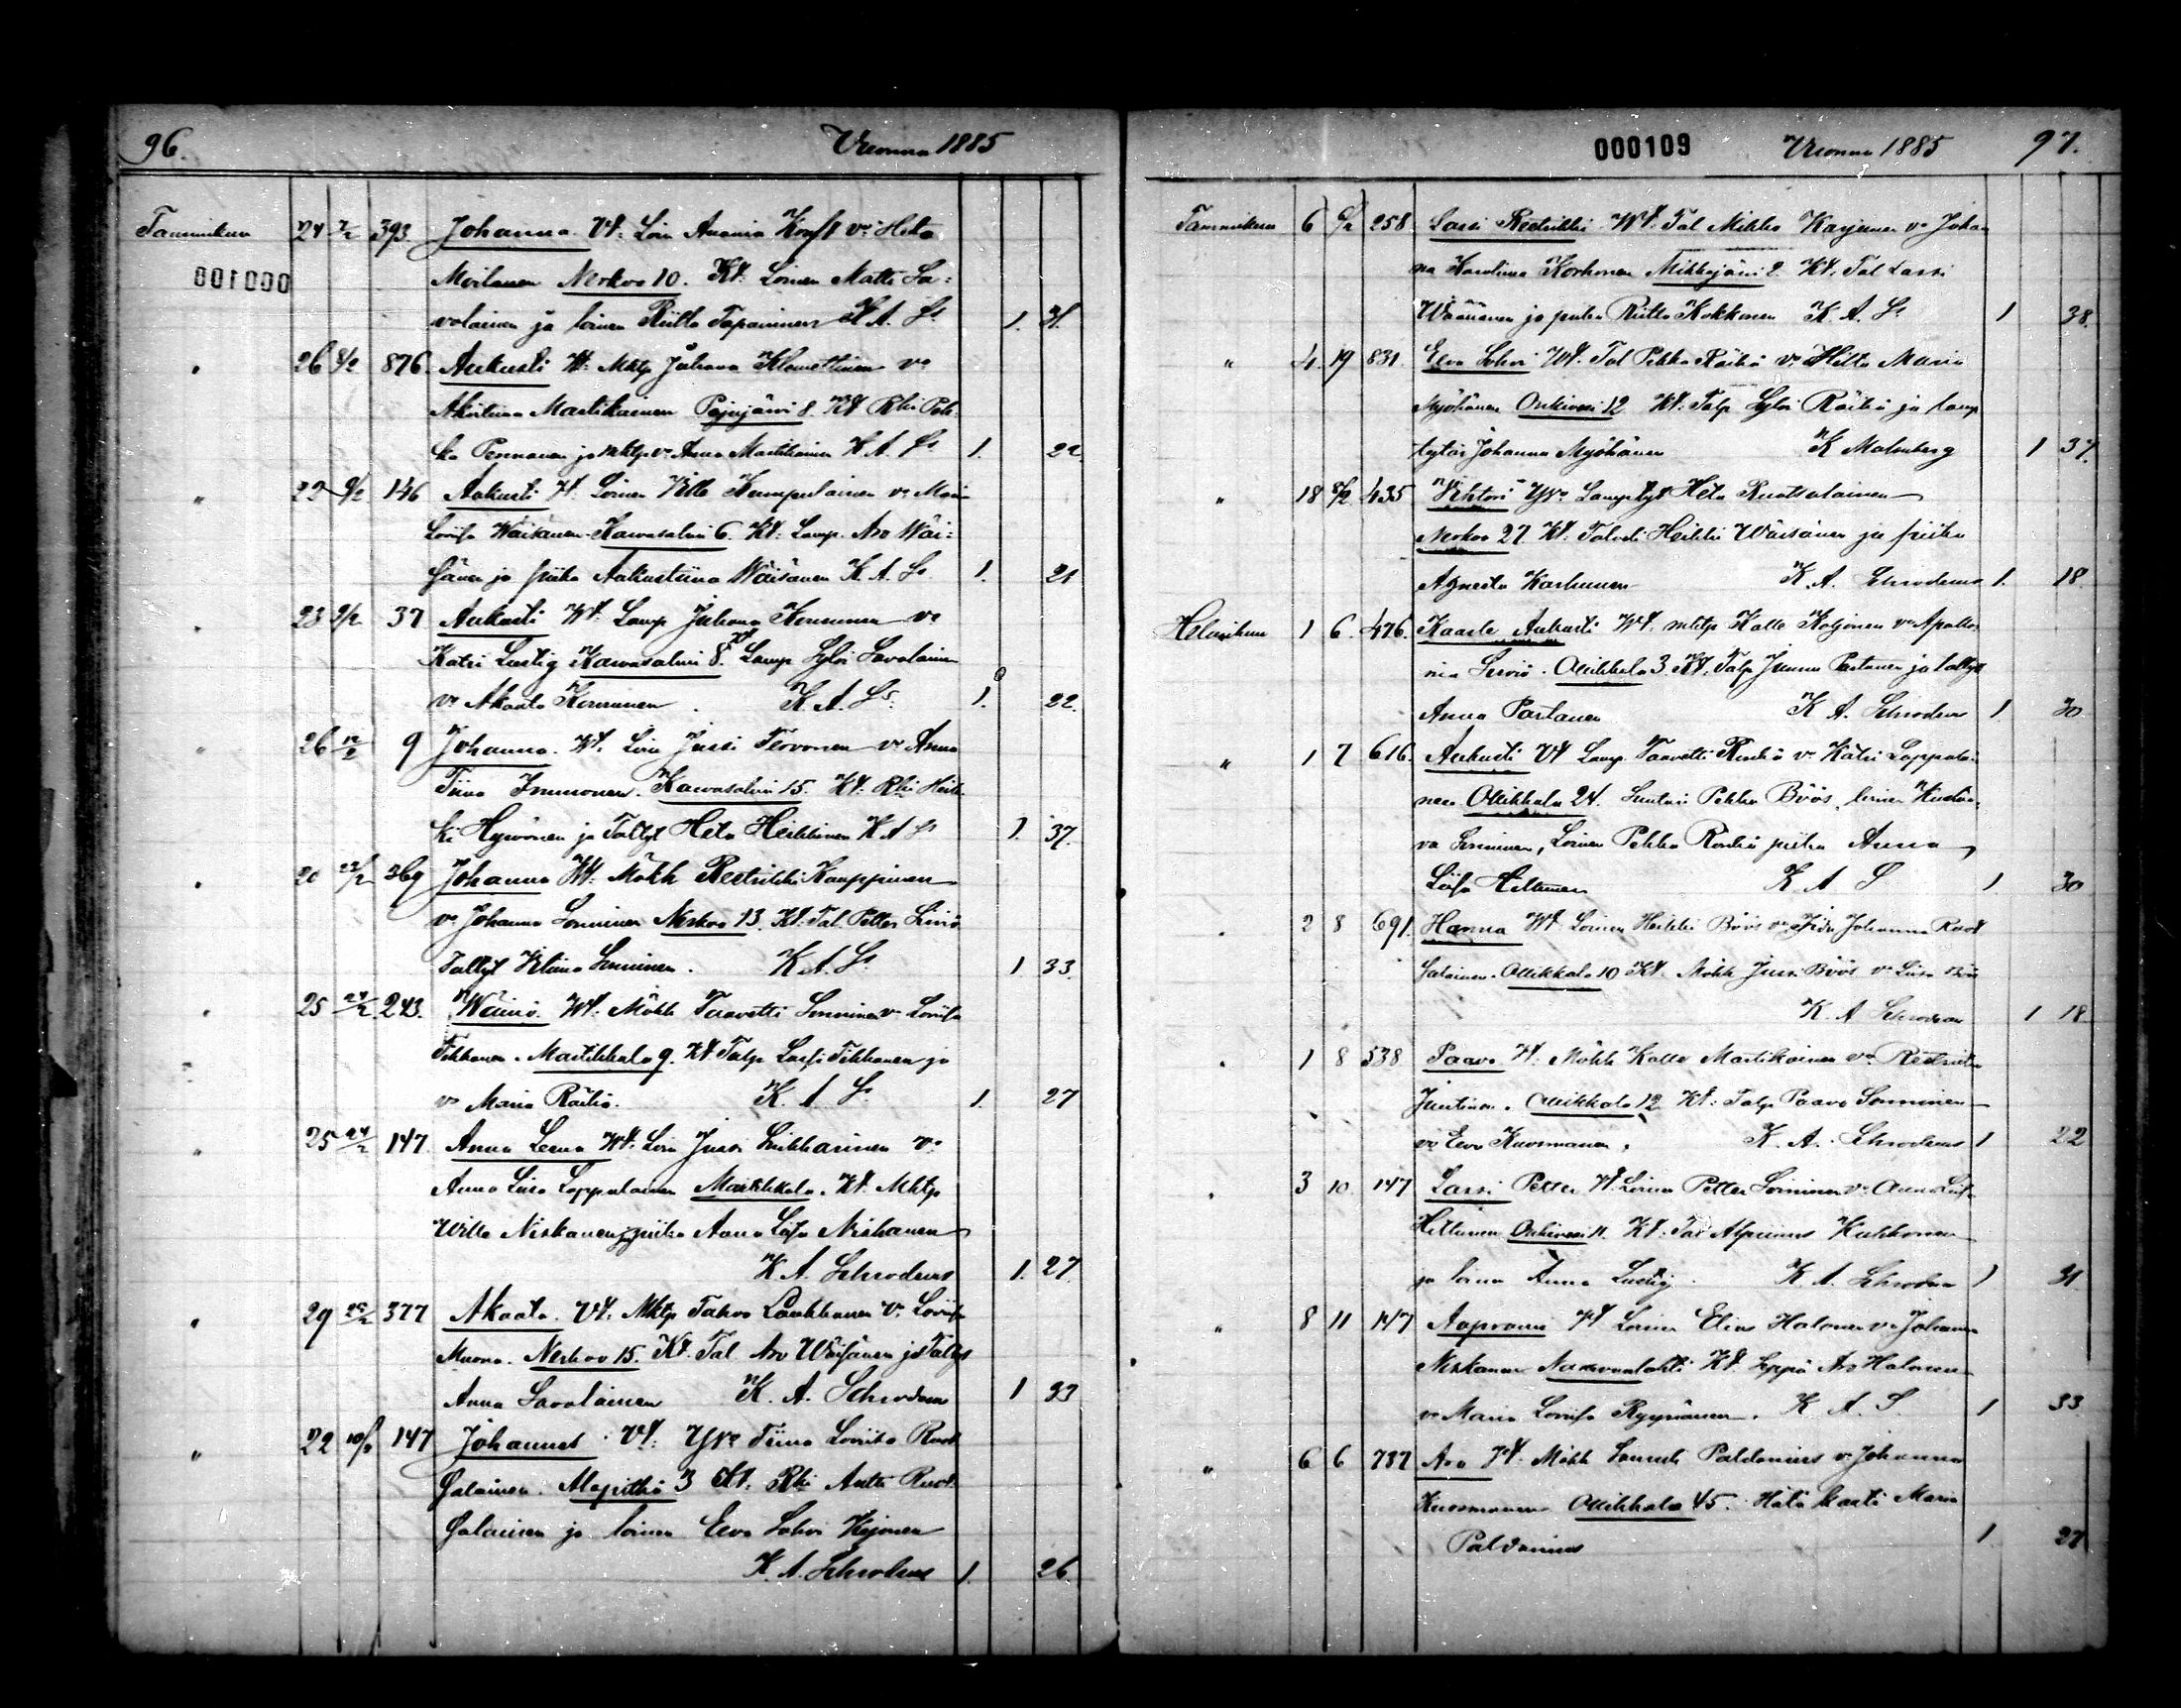 96. Vuonna 1885
Tammikuu 24 7/2 393 Johanna. Vt. Loin Anania Kraft vo Heta
Moilanen Nerkoo 10. Kt. Loinen Matti Sa-
volainen ja loinen Riitta Tapaninen K A. Ss 1. 31.
" 26 8/2 876 Aukusti Vt. Mktp Juhana Klemettinen vo
Martikainen Pajujärvi 8. Kt Rki Pek-
ka Pennanen ja mktp vo Anna Martikainen K A. Ss 1. 22
" 22 8/2 146 Aukusti Vt. Loinen Ville Kumpulainen vo Mari
Lovisa Wäisänen. Kauvasalmi 6. Kt. Lamp. Aro Wäi-
sänen ja piika Aukustiina Wäisänen K. A. Ss 1. 21
" 23 9/2 37 Aukusti Vt. Lamp Juhana Korminen vo
Katri Lustig Kauvasalmi 8. Kt Lamp Sylvi Savolainen
vo Akaata Korminen. K. A. Ss. 1. 22.
" 26 12/2 9 Johanna. Vt. Loin Jussi Tervonen vo Anna
Tiina Immonen. Kauvasalmi 15. Kt. Rki Heik-
ki Hyvönen ja Taltyt Heta Heikkinen K A Ss 1. 37.
" 20 22/2 369 Johanna Vt. Mökk Retrikki Kauppinen
vo Johanna Sonninen Nerkoo 13. Kt. Tal. Petter
Taltyt Sonninen. K. A. Ss. 1 33.
" 25 24/2 243. Wäinö. Vt. Mökk Taavetti Sonninen vo Lovisa
Tikkanen. Martikkala 9. Kt Talp Lassi Tikkanen ja
vo Maria Räihä. K. A. Ss 1. 27
" 25 24/2 147 Anna Leena Vt. Loin Jussi vo
Anna Liisa Lappalainen Martikkala. Kt. Mktp
Wille Niskanen ja piika Anna Liisa Niskanen
K A. Schroderus 1. 27.
" 29 377 Akaata. Vt. Mktp Tahvo Laukkanen vo Lovisa
Muona. Nerkoo 15. Kt. Tal. Aro Wäisänen ja Taltyt
Anna Savolainen K. A. Schroderus 1 33
" 22 147 Johannes Vt. Yvo Tiina Lovisa Ruot-
salainen. Alapitkä 3 Kt. Rki Antti Ruot-
salainen ja loinen Eeva Sohvi Kejonen
K. A. Schroderus 1. 26.
000109 Vuonna 1885 97.
Tammikuu 6 258. Lassi Retrikki Vt. Tal Mikko Karjunen vo Johan
na Karoliina Korhonen Mikkajärvi 2. Kt. Tal Lassi
Wäänänen ja piika Riitta Kokkonen K. A. Ss 1 38.
" 4. 19 831. Eeva Sohvi Vt. Tal Pekka Räihä vo Hilta Maria
Myöhänen Onkivesi 12 Kt. Talp Sylvi Räihä ja lamp
tytär Johanna Myöhänen K Malmberg 1 37.
" 18 8/2 435 Vihtori Yvo Lamptyt Heta Ruotsalainen
Nerkoo 27 Kt. Heikki Wäisänen ja piika
Agneeta Karhunen K. A. Schroderus 1. 18.
Helmikuu 1 6. 476. Kaarle Aukusti Vt. mktp Kalle Koljonen vo Apollo-
nia Serviö. Ollikkala 3. Kt. Talp Junnu Partanen ja taltyt
Anna Partanen K A. Schroderus 1 30
" 1 7 616. Aukusti Vt Lamp. Taavetti Rönkä vo Katri Lappalai-
nen Ollikkala 24. Suutari Pekka Böös, loinen
va Sonninen, Loinen Pekka Rönkä piika Anna
Liisa Hiltunen K A S 1 30
" 2 8 691. Hanna Vt Loinen Heikki Böös vo Johanna Ruot
salainen. Ollikkala 10 Kt. Mökk Jussi Böös vo Liisa Böös
K. A Schroderus 1 18
" 1 8 538 Paavo Vt. Mökk Kalle Martikainen vo
Juutinen. Ollikkala 12 Kt. Talp Paavo Sonninen
vo Eeva Kuosmanen. K. A. Schroderus 1 22
" 3 10. 147 Lassi Petter Vt. Loinen Petter Soininen vo Anna Liisa
Hiltunen Onkivesi 11. Kt. Tal Kukkonen
ja loinen Anna Lustig. K A. Schroderus 1 31.
" 8 11 147 Aaprami Vt Loinen Elias Halonen vo Johanna
Niskanen Naarvanlahti Kt. Seppä Aro Halonen
vo Maria Lovisa Ryynänen. K A. S. 1 33
" 6 6 787 Aro Vt. Mökk Samuli Paldanius vo Johanna
Kuosmanen Ollikkala 45. Hätä kasti Maria
Paldanius 1 27